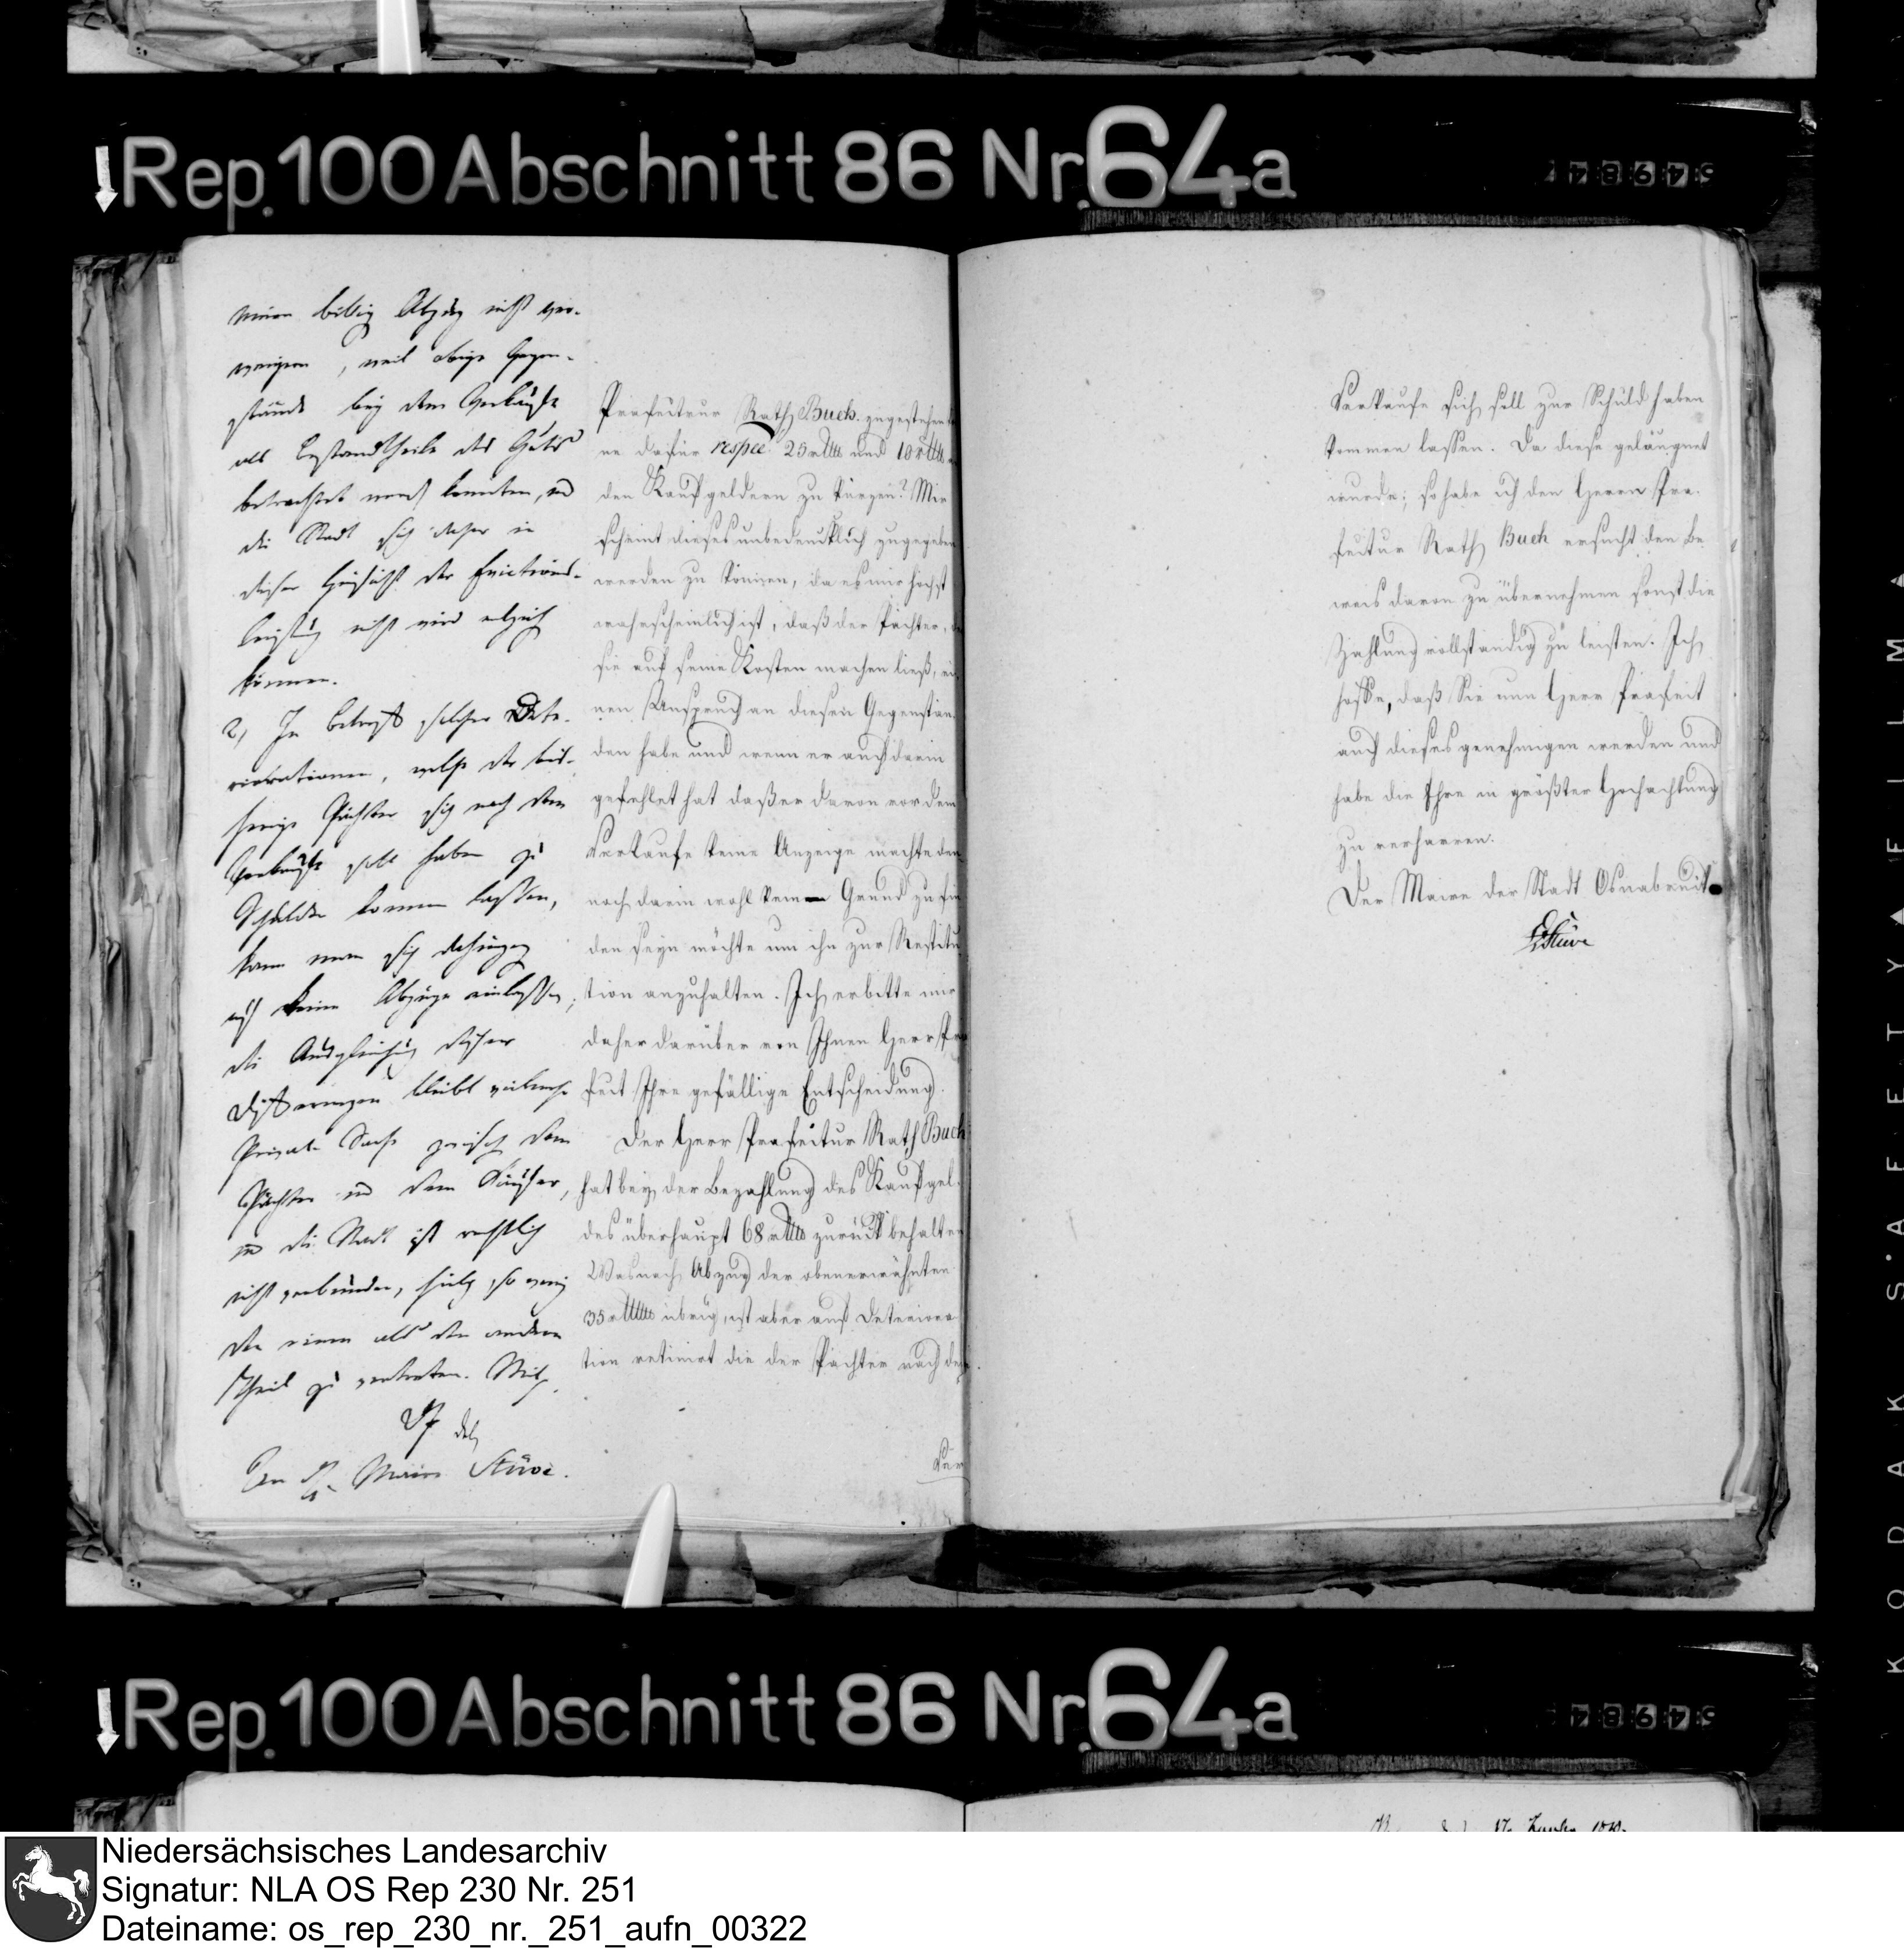 Rep. 100 Abschnitt 86 Nr. 64a
einen billig Abzug nicht ver-
weigern, weil obige Gegen-
stände bey dem Verkaufe
als Bestandtheile des Guts
betrachtet werd konnten, und
die Stadt sich daher in
dieser Hinsicht der Evictions-
leistung nicht wird entzieh
können.
2, In betreff solcher Dete-
riorationen, welche der bis-
herige Pächter sich nach dem
Verkaufe soll haben zu
Schulden kommen lassen,
kann man sich dahingegen
auf keine Abzüge einlassen;
die Ausgleichung dieser
Differenzen bleibt vielmehr
Privat Sache zwisch dem
Pächter und dem Käufer,
und die Stadt ist rechtlich
nicht verbunden, hiebey so wenig
den einen als den andern
Theil zu vertreten.
An H. Maire Stüve.
Praefectur Rath Buch zugestehen
ne dafür respec. 25 rthl und 10 rthl
den Kaufgeldern zu kürzen? Mir
scheint dieses unbedencklich zugegeben
werden zu können, da es mir höchst
wahrscheinlich ist, daß der Pächter,
sie auf seine Kosten machen ließ,
nen Anspruch an diesen Gegenstän
den habe und wenn er auch darin
gefehlet hat daß er davon vor dem
Verkaufe keine Anzeige machte den
noch darin wohl kein Grund zu fin
den seyn möchte um ihn zur Restitu
tion anzuhalten. Ich erbitte mir
daher darüber von Ihnen Herr Prä
fect Ihre gefällige Entscheidung.
Der Herr Praefectur Rath Buch
hat bey der Bezahlung des Kaufgel
des überhaupt 68 rthl zurück behalten
Was nach Abzug der obenerwähnten
35 rthl übrig, ist aber auf Deteriora
tion retinirt die der Pächter nach dem
Ver
Verkaufe sich soll zur Schuld haben
kommen lassen. Da diese geläugnet
wurde; so habe ich den Herrn Prä
fectur Rath Buch ersucht den Be
weis davon zu übernehmen sonst die
Zahlung vollständig zu leisten. Ich
hoffe, daß Sie nun Herr Präfect
auch dieses genehmigen werden und
habe die Ehre in größter Hochachtung
zu verharren.
Der Maire der Stadt Osnabrück
Stüve
KODAK SAFETY FILM
Rep. 100 Abschnitt 86 Nr. 64a
Niedersächsisches Landesarchiv
Signatur: NLA OS Rep 230 Nr. 251
Dateiname: os_rep_230_nr._251_aufn_00322